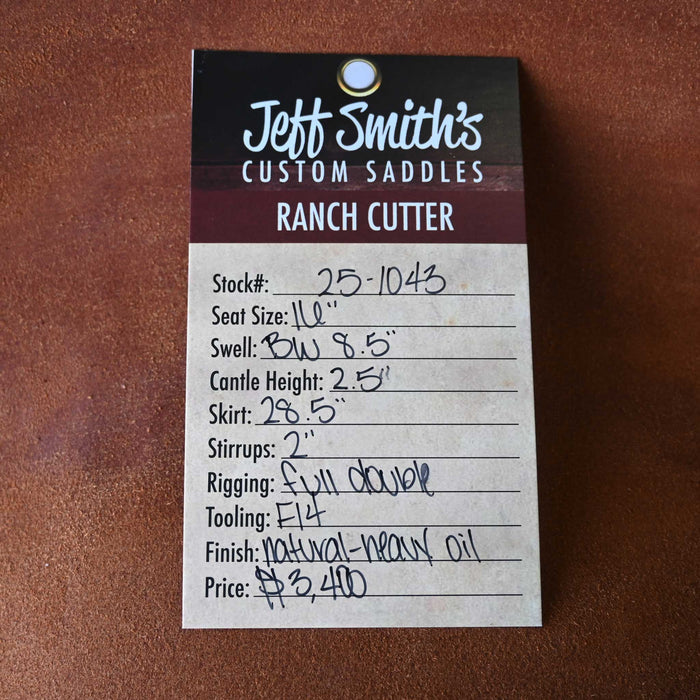 Jeff Smith's
CUSTOM SADDLES
RANCH CUTTER
Stock#: 25-1043
Seat Size: 16"
Swell: BW 8.5"
Cantle Height: 2.5"
Skirt: 28.5"
Stirrups: 2"
Rigging: full double
Tooling: F14
Finish: natural-heavy oil
Price: $3,400